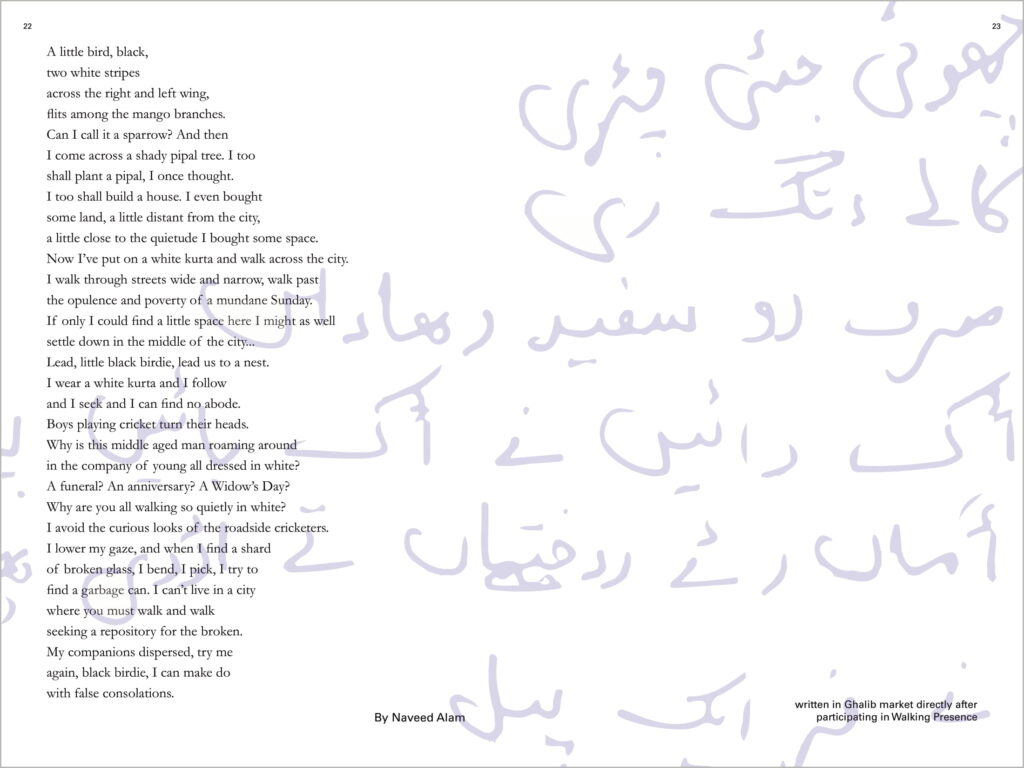 22
23
A little bird, black,
two white stripes
across the right and left wing,
flits among the mango branches.
Can I call it a sparrow? And then
I come across a shady pipal tree. I too
shall plant a pipal, I once thought.
I too shall build a house. I even bought
some land, a little distant from the city,
a little close to the quietude I bought some space.
Now I've put on a white kurta and walk across the city.
I walk through streets wide and narrow, walk past
the opulence and poverty of a mundane Sunday.
If only I could find a little space here I might as well
settle down in the middle of the city...
Lead, little black birdie, lead us to a nest.
I wear a white kurta and I follow
and I seek and I can find no abode.
Boys playing cricket turn their heads.
Why is this middle aged man roaming around
in the company of young all dressed in white?
A funeral? An anniversary? A Widow's Day?
Why are you all walking so quietly in white?
I avoid the curious looks of the roadside cricketers.
I lower my gaze, and when I find a shard
of broken glass, I bend, I pick, I try to
find a garbage can. I can't live in a city
where you must walk and walk
seeking a repository for the broken.
My companions dispersed, try me
again, black birdie, I can make do
with false consolations.
By Naveed Alam
چھوٹی جئی
کالے رنگ دی
صرف دو سفید
اک دائیں تے اک بائیں
تے اک
written in Ghalib market directly after
participating in Walking Presence